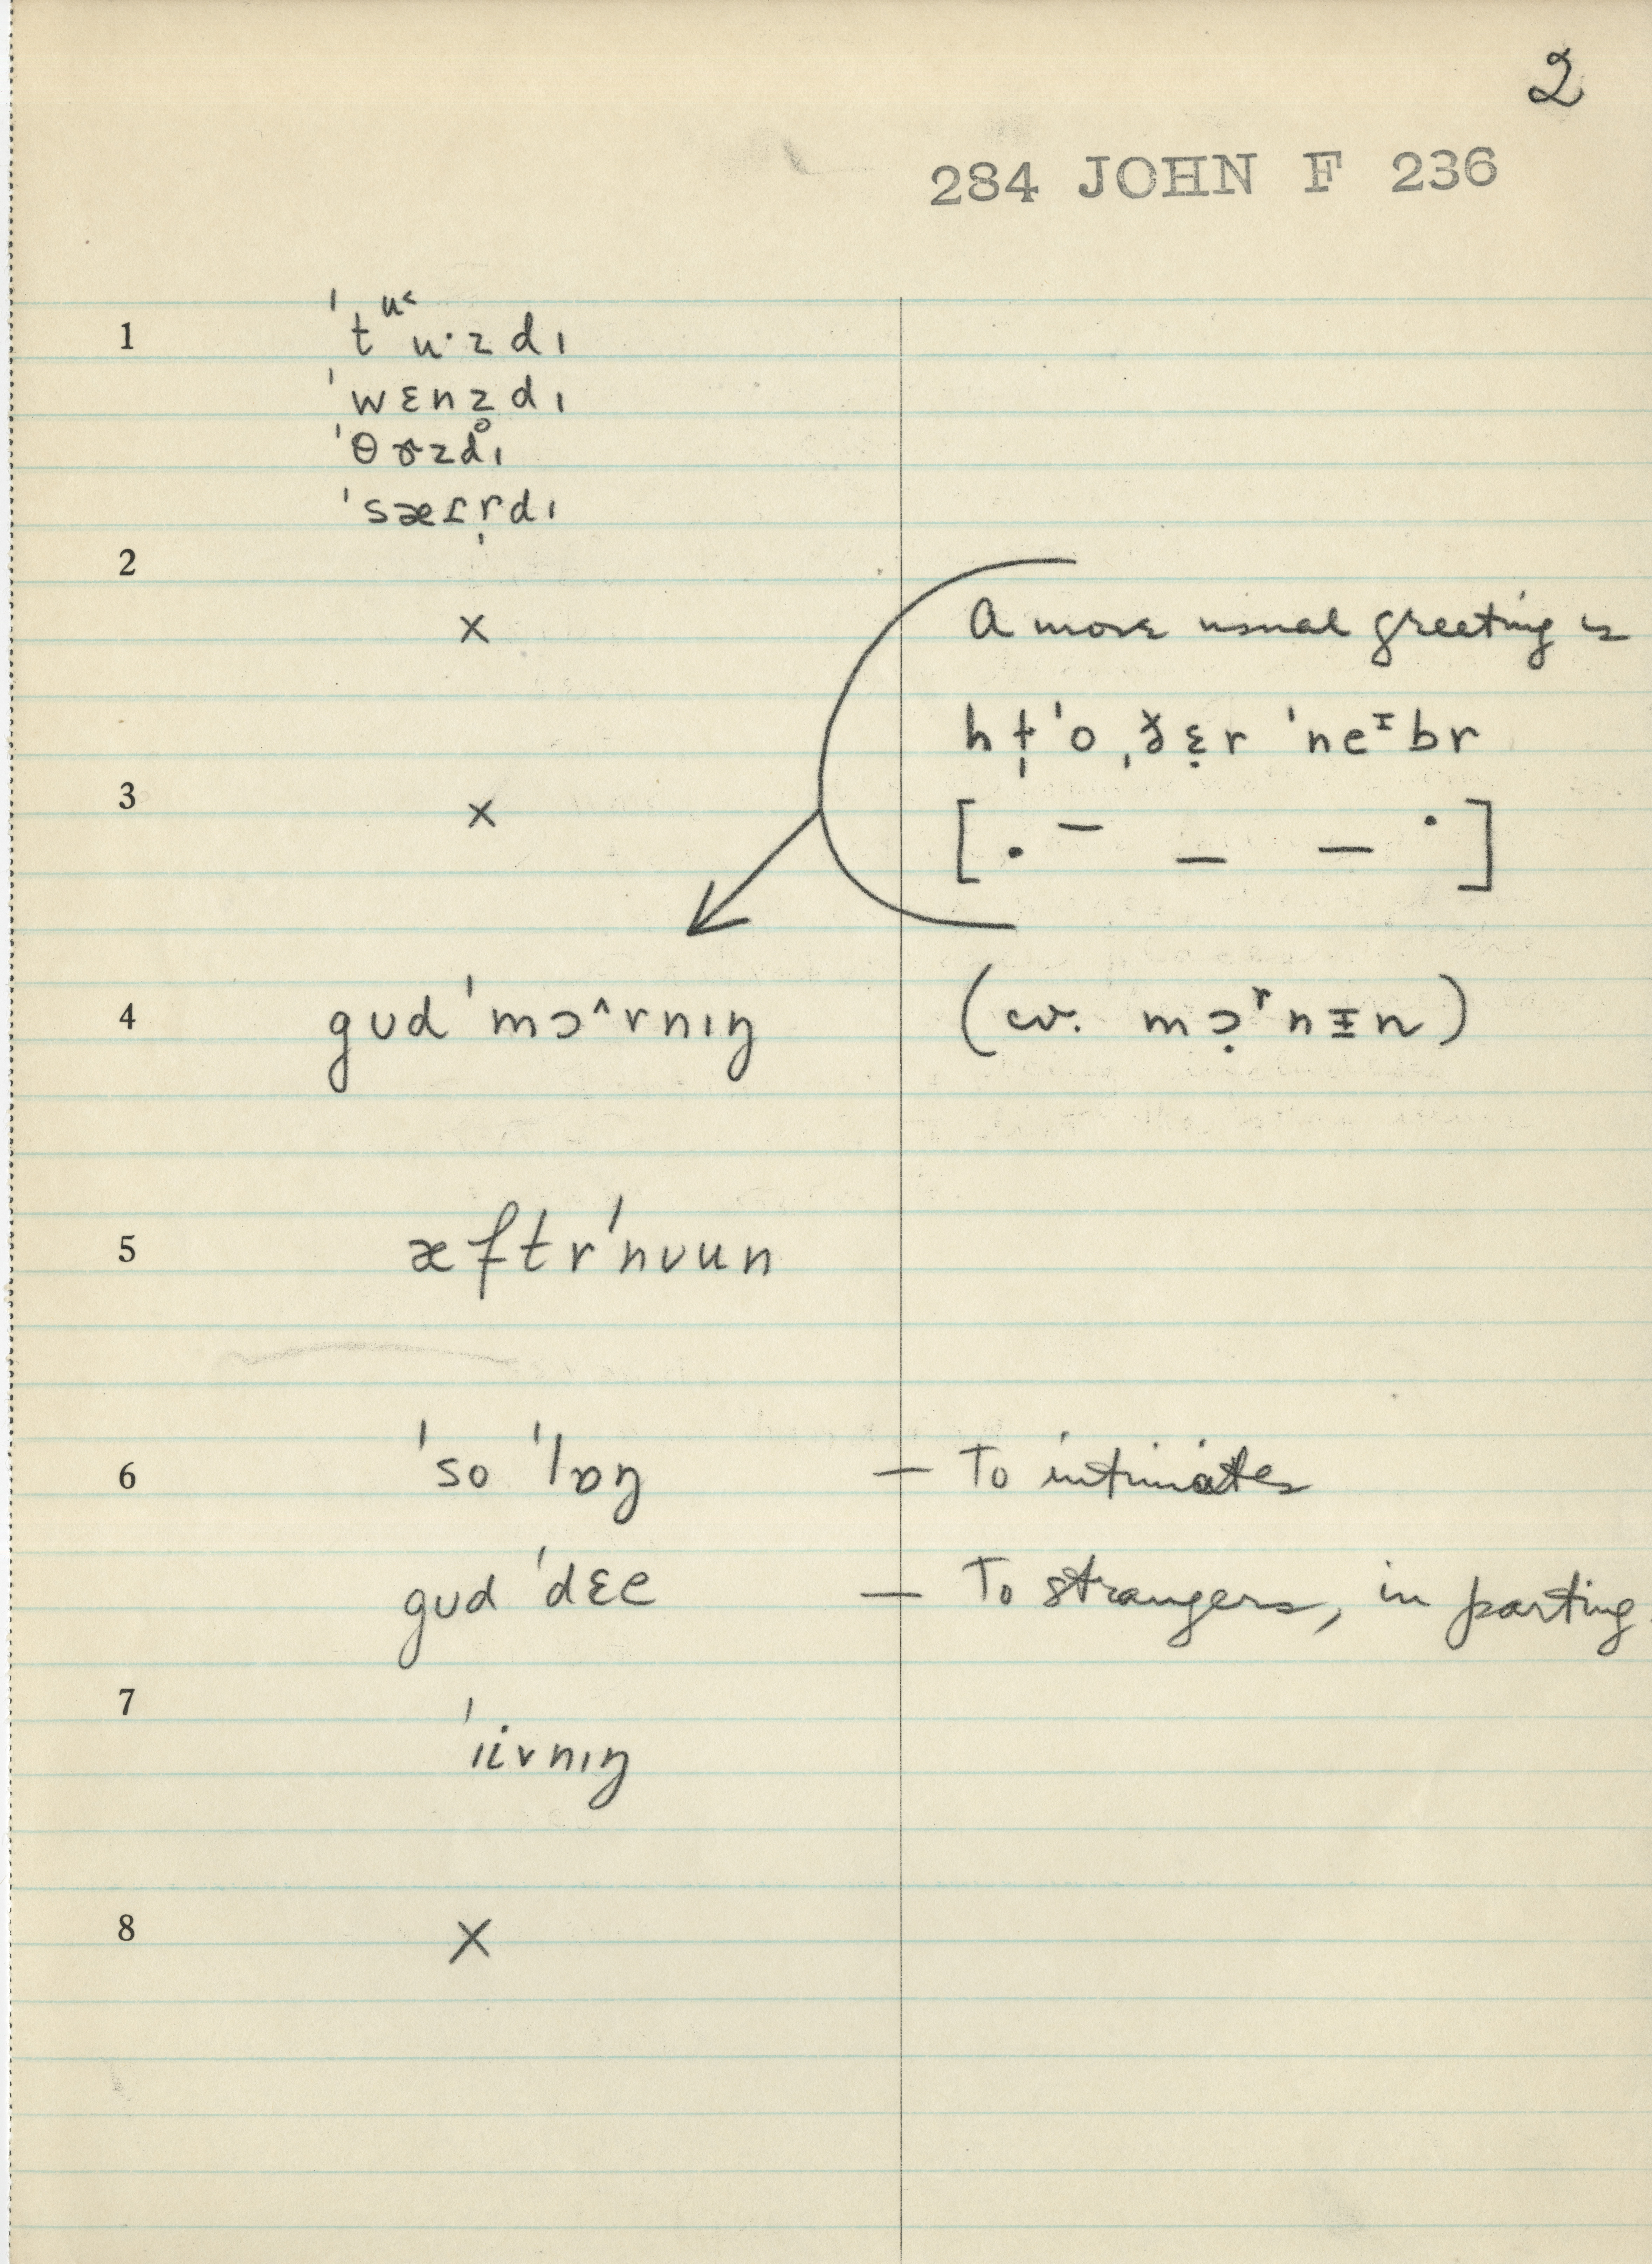 2
284 JOHN F 236
1 ˈtᵘ˂u·zdɪ
ˈwɛnz̥dɪ
ˈθɚzdɪ
ˈsæɾr̩dɪ
2 × A more usual greeting is
ˈneᶦbr
3 × [ . – – – · ]
4 gʊdˈmɔ^rnɪŋ (cv. mɔ̣ʳnɪn)
5 æftrˈnʊun
6 ˈso ˈlɒŋ — To intimates
gʊd ˈdɛe — To strangers, in parting.
7 ˈɪivnɪŋ
8 ×